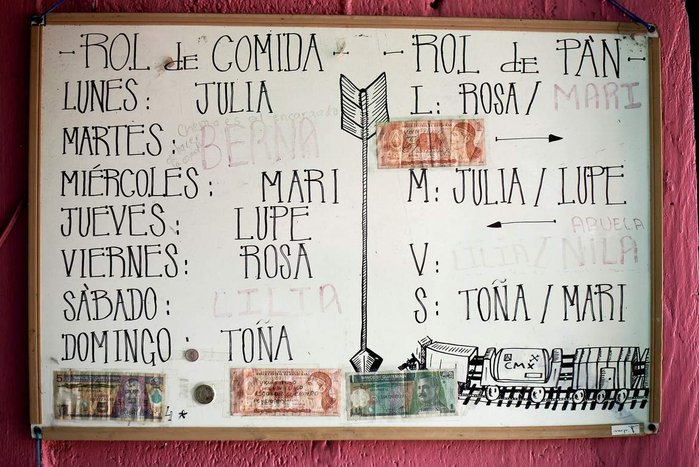 -ROL de COMIDA-
LUNES: JULIA
MARTES: BERNA
MIÉRCOLES: MARI
JUEVES: LUPE
VIERNES: ROSA
SÀBADO: LILIA
DOMINGO: TOÑA
-ROL de PÀN-
L: ROSA/MARI
M: JULIA/LUPE
ABUELA
V: LILIA/NILA
S: TOÑA/MARI
CMX
5